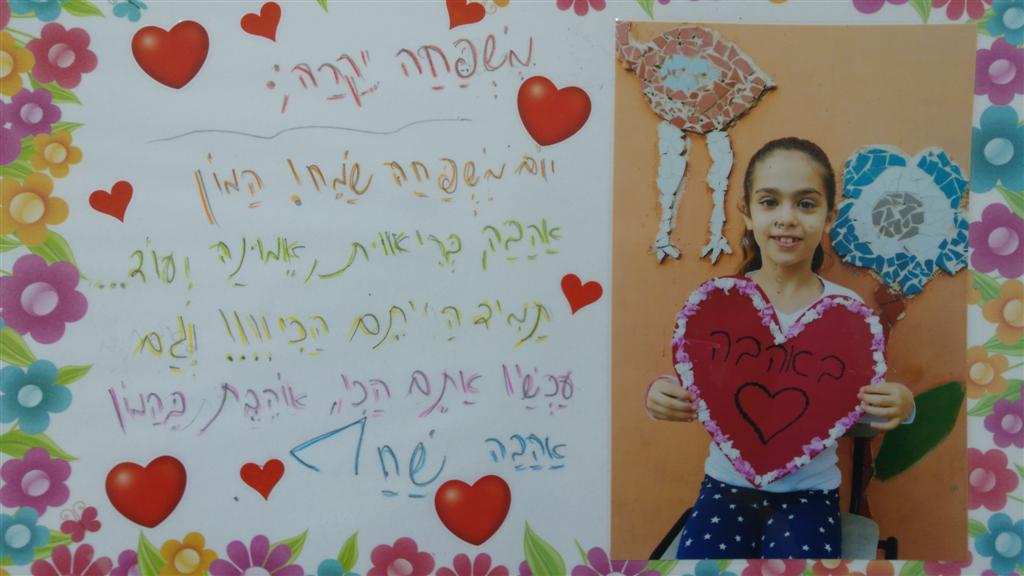 מִשְׁפָּחָה יְקָרָה;
יוֹם מִשְׁפָּחָה שָׂמֵחַ! הַמוֹן
אַהֲבָה בְּרִיאוּת, אֱמוּנָה וְעוֹד....
תָּמִיד הֲיִיתֶם הַכִי!!!!! וְגַם
עַכְשָׁיו אַתֶם הַכִי, אוֹהֶבֶת בַּהֲמוֹן
אַהֲבָה
באהבה